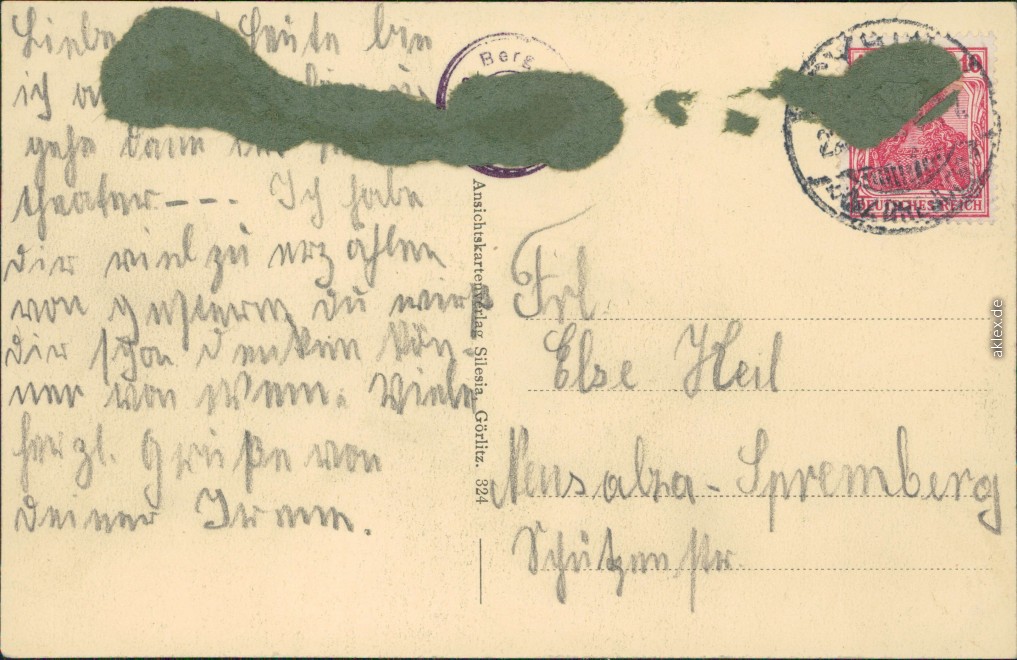 Liebe Heute bin
ich
gehe dann
theater --- Ich habe
dir viel zu erzählen
von gestern, du wirst
dir schon denken kön-
nen von wem. Viele
herzl. Grüße von
deiner
Berg
Ansichtskartenverlag Silesia, Görlitz. 324
10
DEUTSCHES REICH
Frl.
Else Heil
Neusalza-Spremberg
Schützenstr.
aklex.de